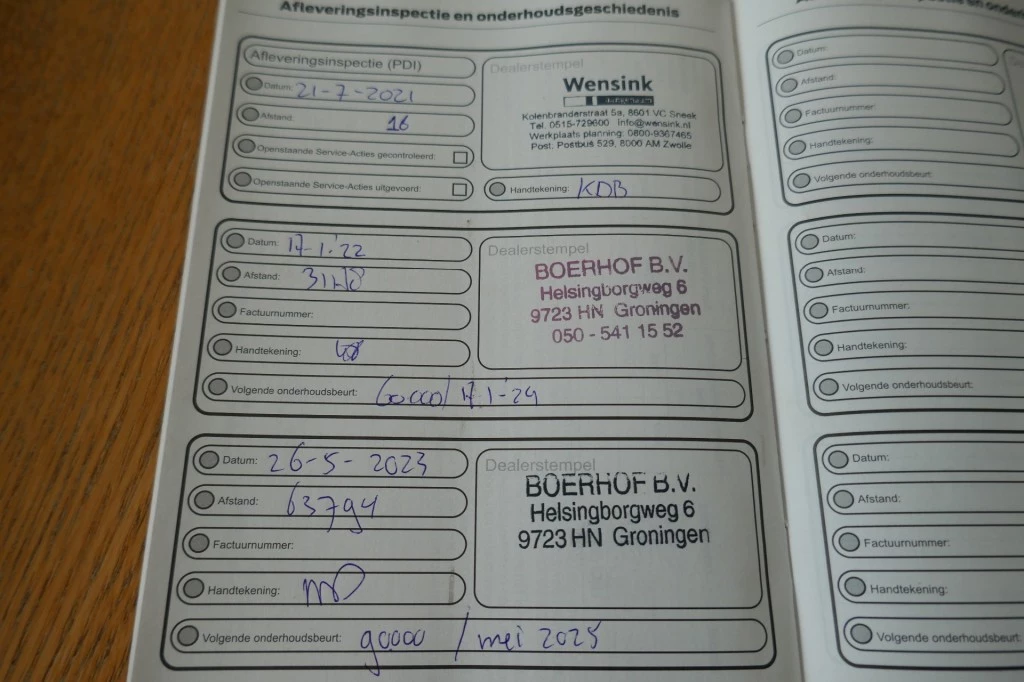 Afleveringsinspectie en onderhoudsgeschiedenis
Afleveringsinspectie (PDI)
Datum: 21-7-2021
Afstand: 16
Openstaande Service-Acties gecontroleerd:
Openstaande Service-Acties uitgevoerd:
Dealerstempel
Wensink
Kolenbranderstraat 5a, 8601 VC Sneek
Tel. 0515-729600 info@wensink.nl
Werkplaats planning: 0800-9367465
Post: Postbus 529, 8000 AM Zwolle
Handtekening: KDB
Datum: 17-1-'22
Afstand:
Factuurnummer:
Handtekening:
Dealerstempel
BOERHOF B.V.
Helsingborgweg 6
9723 HN Groningen
050 - 541 15 52
Volgende onderhoudsbeurt: 60000/17-1-'24
Datum: 26-5-2023
Afstand: 63794
Factuurnummer:
Handtekening:
Dealerstempel
BOERHOF B.V.
Helsingborgweg 6
9723 HN Groningen
Volgende onderhoudsbeurt: 90000 / mei 2025
Datum:
Afstand:
Factuurnummer:
Handtekening:
Volgende onderhoudsbeurt:
Datum:
Afstand:
Factuurnummer:
Handtekening:
Volgende onderhoudsbeurt:
Datum:
Afstand:
Factuurnummer:
Handtekening:
Volgende onderhoudsbeurt: